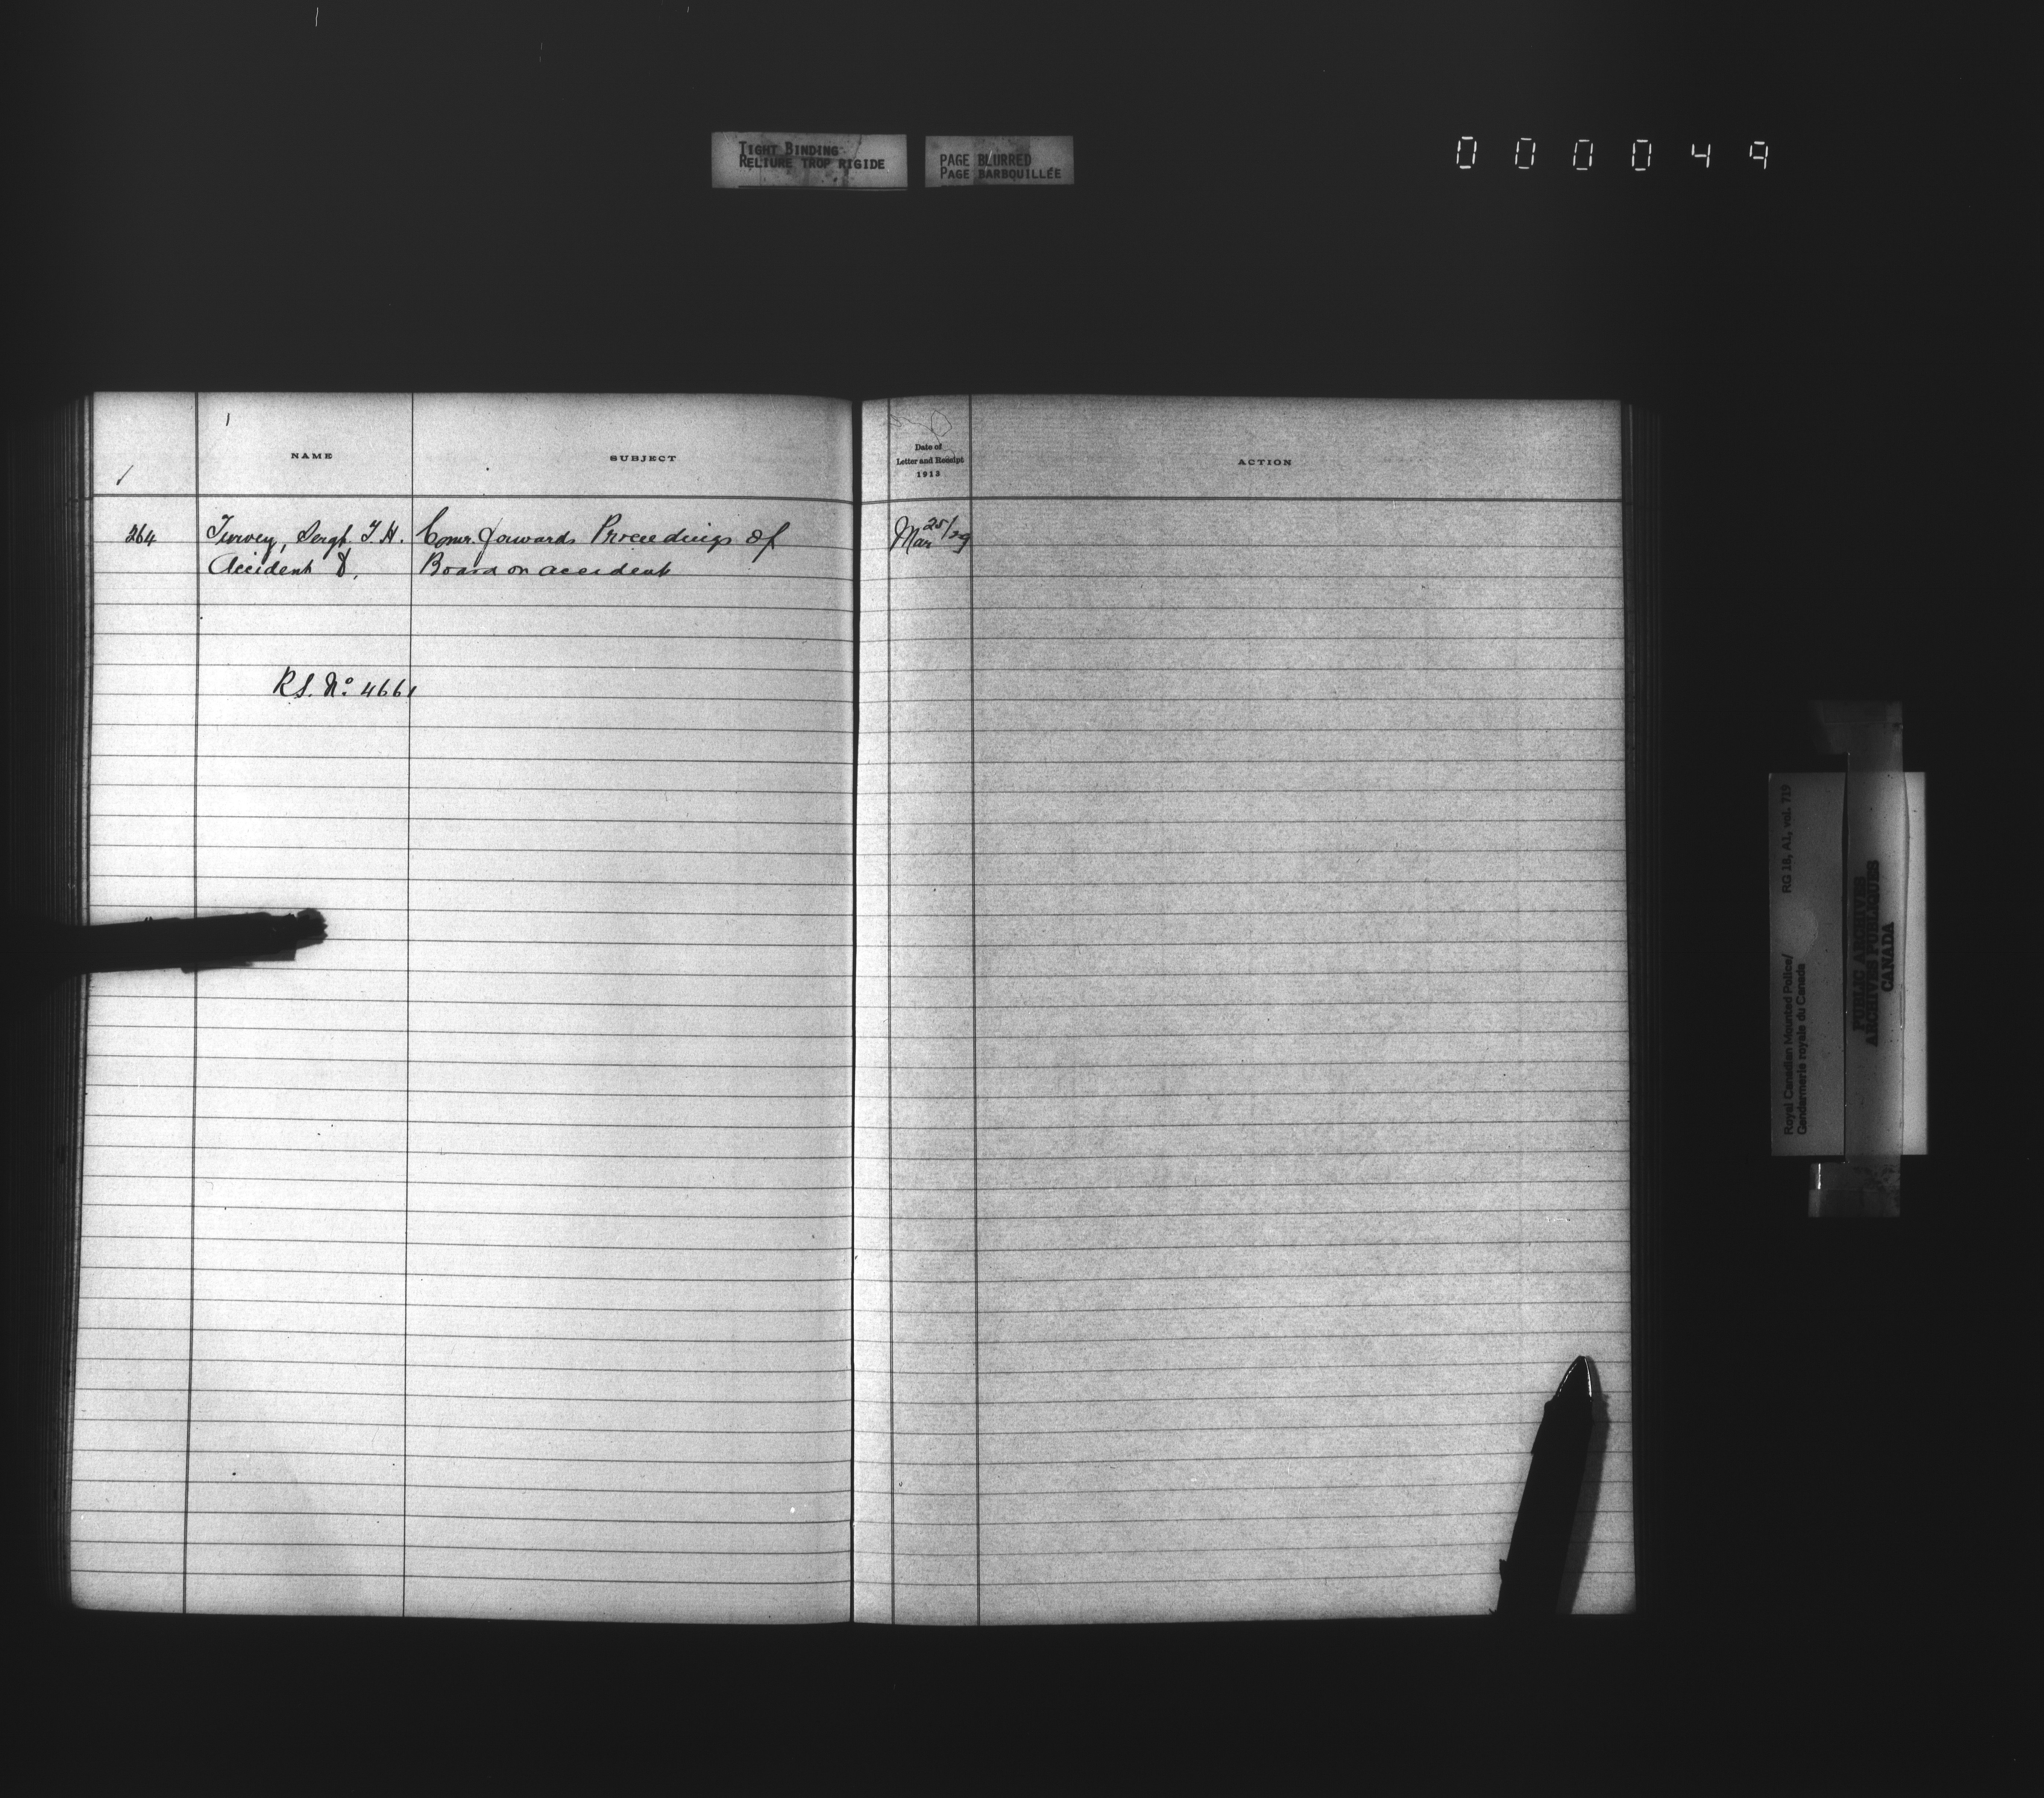 TIGHT BINDING
RELIURE TROP RIGIDE
PAGE BLURRED
PAGE BARBOUILLÉE
000049
NAME
SUBJECT
Date of
Letter and Receipt
1913
ACTION
264 Turvey, Sergt. T.H. Comr. forwards Proceedings of Mar 25/29
Accident &, Board on accident
R.S. No. 4661
Royal Canadian Mounted Police/ RG 18, A1, vol. 719
Gendarmerie royale du Canada
PUBLIC ARCHIVES
ARCHIVES PUBLIQUES
CANADA